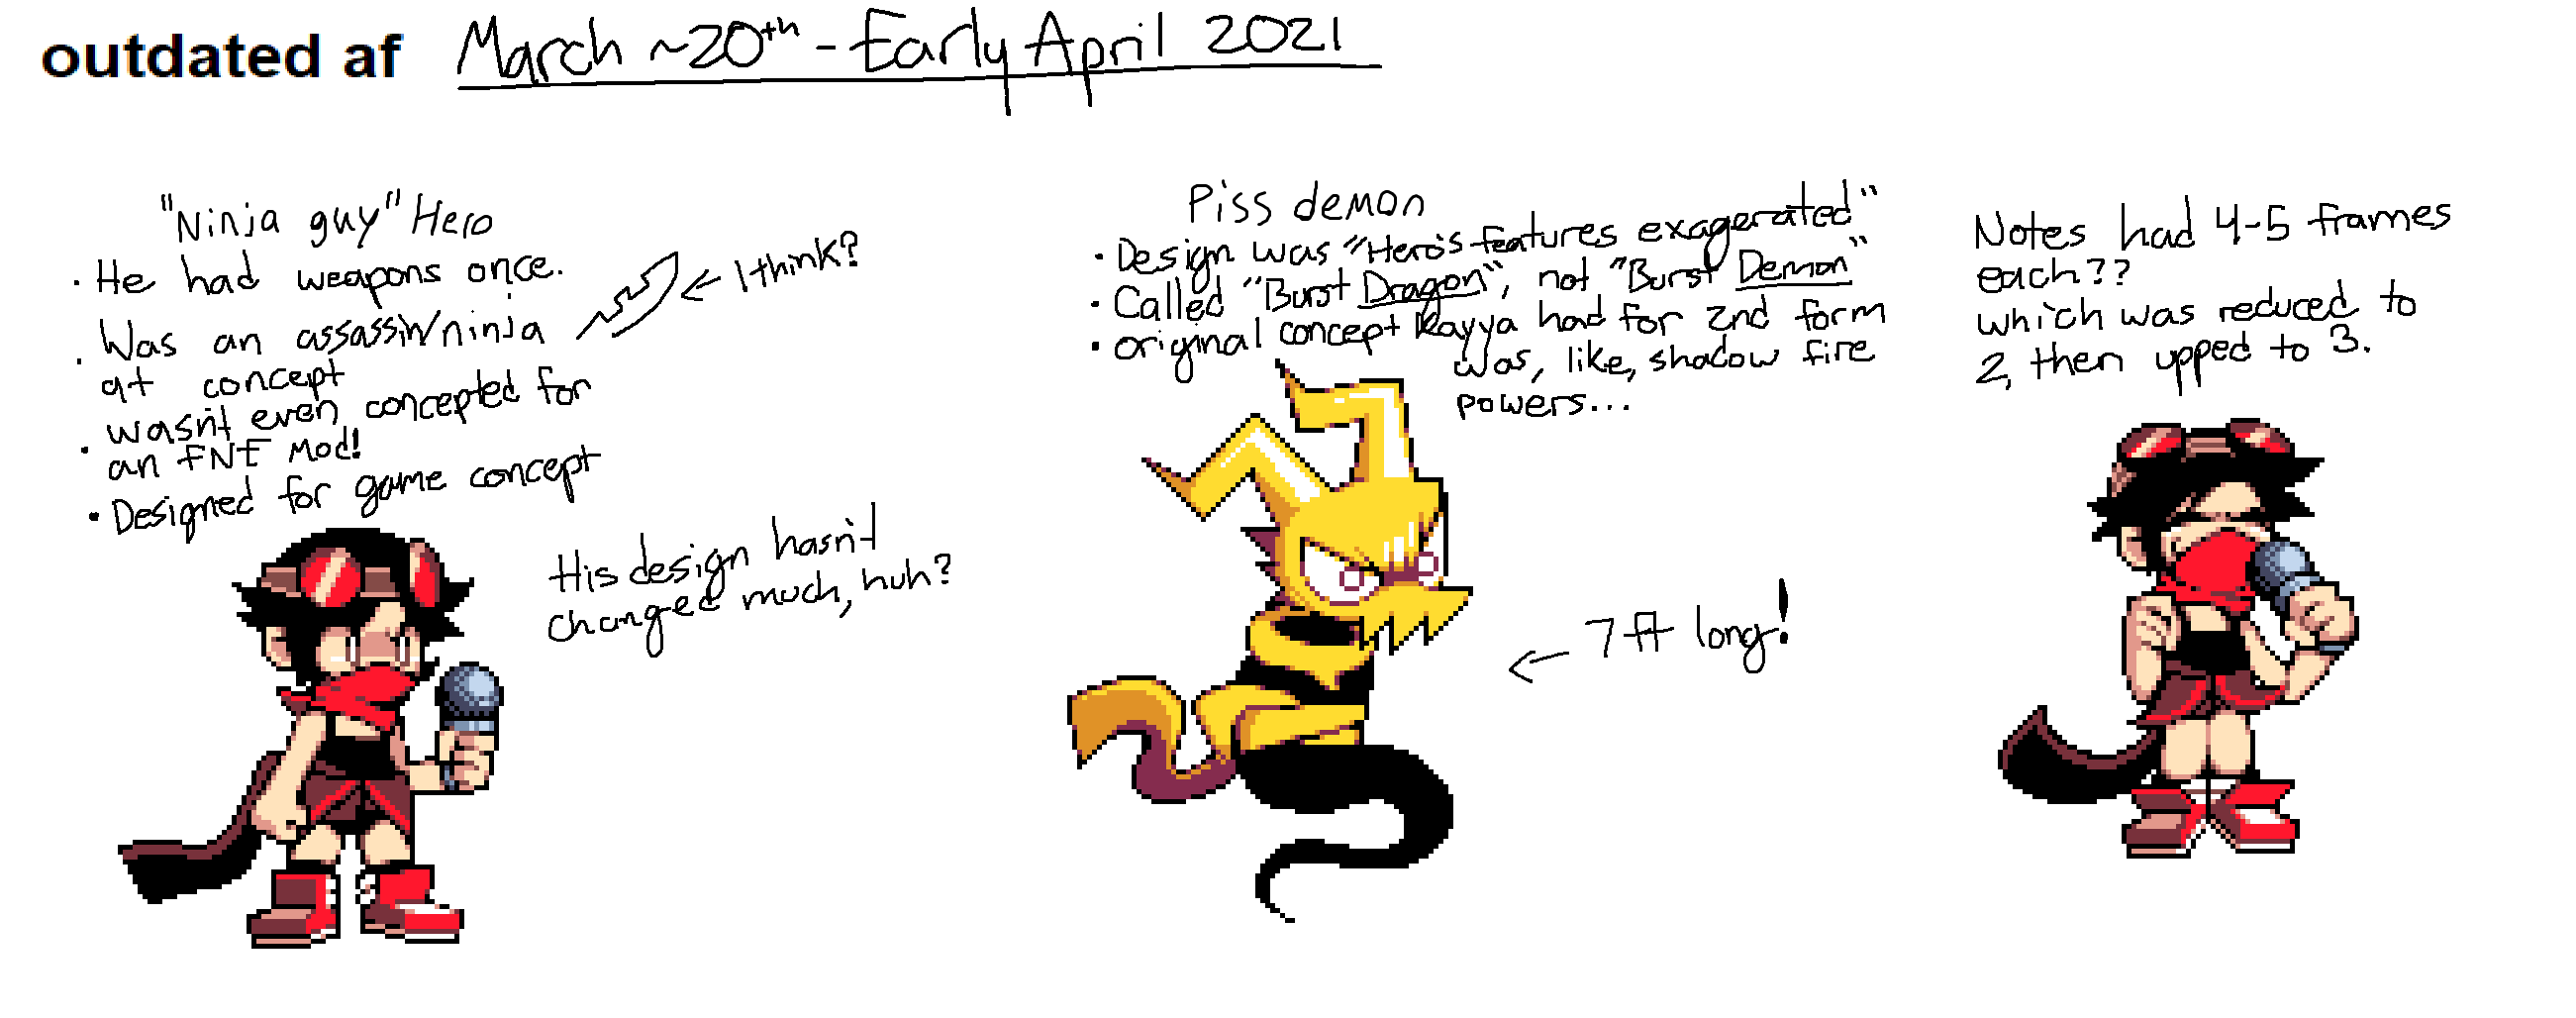 outdated af March ~20th - Early April 2021
"Ninja guy" Hero
• He had weapons once.
← I think?
• Was an assassin/ninja
at concept
• wasn't even concepted for
an FNF Mod!
• Designed for game concept
His design hasn't
changed much, huh?
Piss demon
• Design was "Hero's features exagerated"
• Called "Burst Dragon", not "Burst Demon"
• original concept Kayya had for 2nd form
was, like, shadow fire
powers...
← 7 ft long!
Notes had 4-5 frames
each??
which was reduced to
2, then upped to 3.